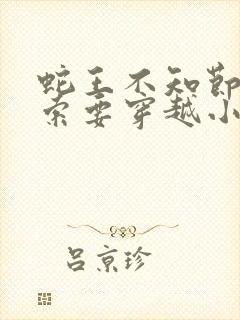 蛇王不知节
索要穿越小
吕京珍